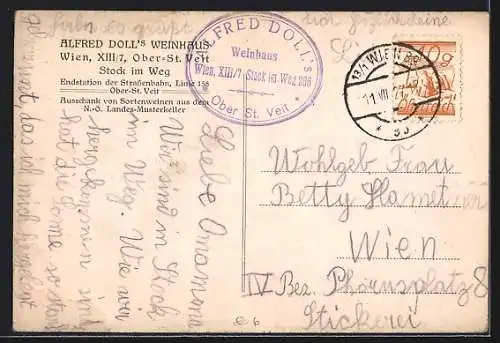 ALFRED DOLL'S WEINHAUS
Wien, XIII/7, Ober-St. Veit
Stock im Weg
Endstation der Straßenbahn, Linie 158
Ober-St. Veit
Ausschank von Sortenweinen aus dem
N.-Ö. Landes-Musterkeller
ALFRED DOLL'S
Weinhaus
Wien, XIII/7 Stock im Weg
Ober St. Veit
WIEN
10g
Liebe Omama
Wir sind in Stock
im Weg. Wie wir
sind
hat die Sonne so stark
das ich mich
es grüßt
dich
Wohlgeb Frau
Betty
Wien
IV Bez. Phorusplatz 8
Stickerei